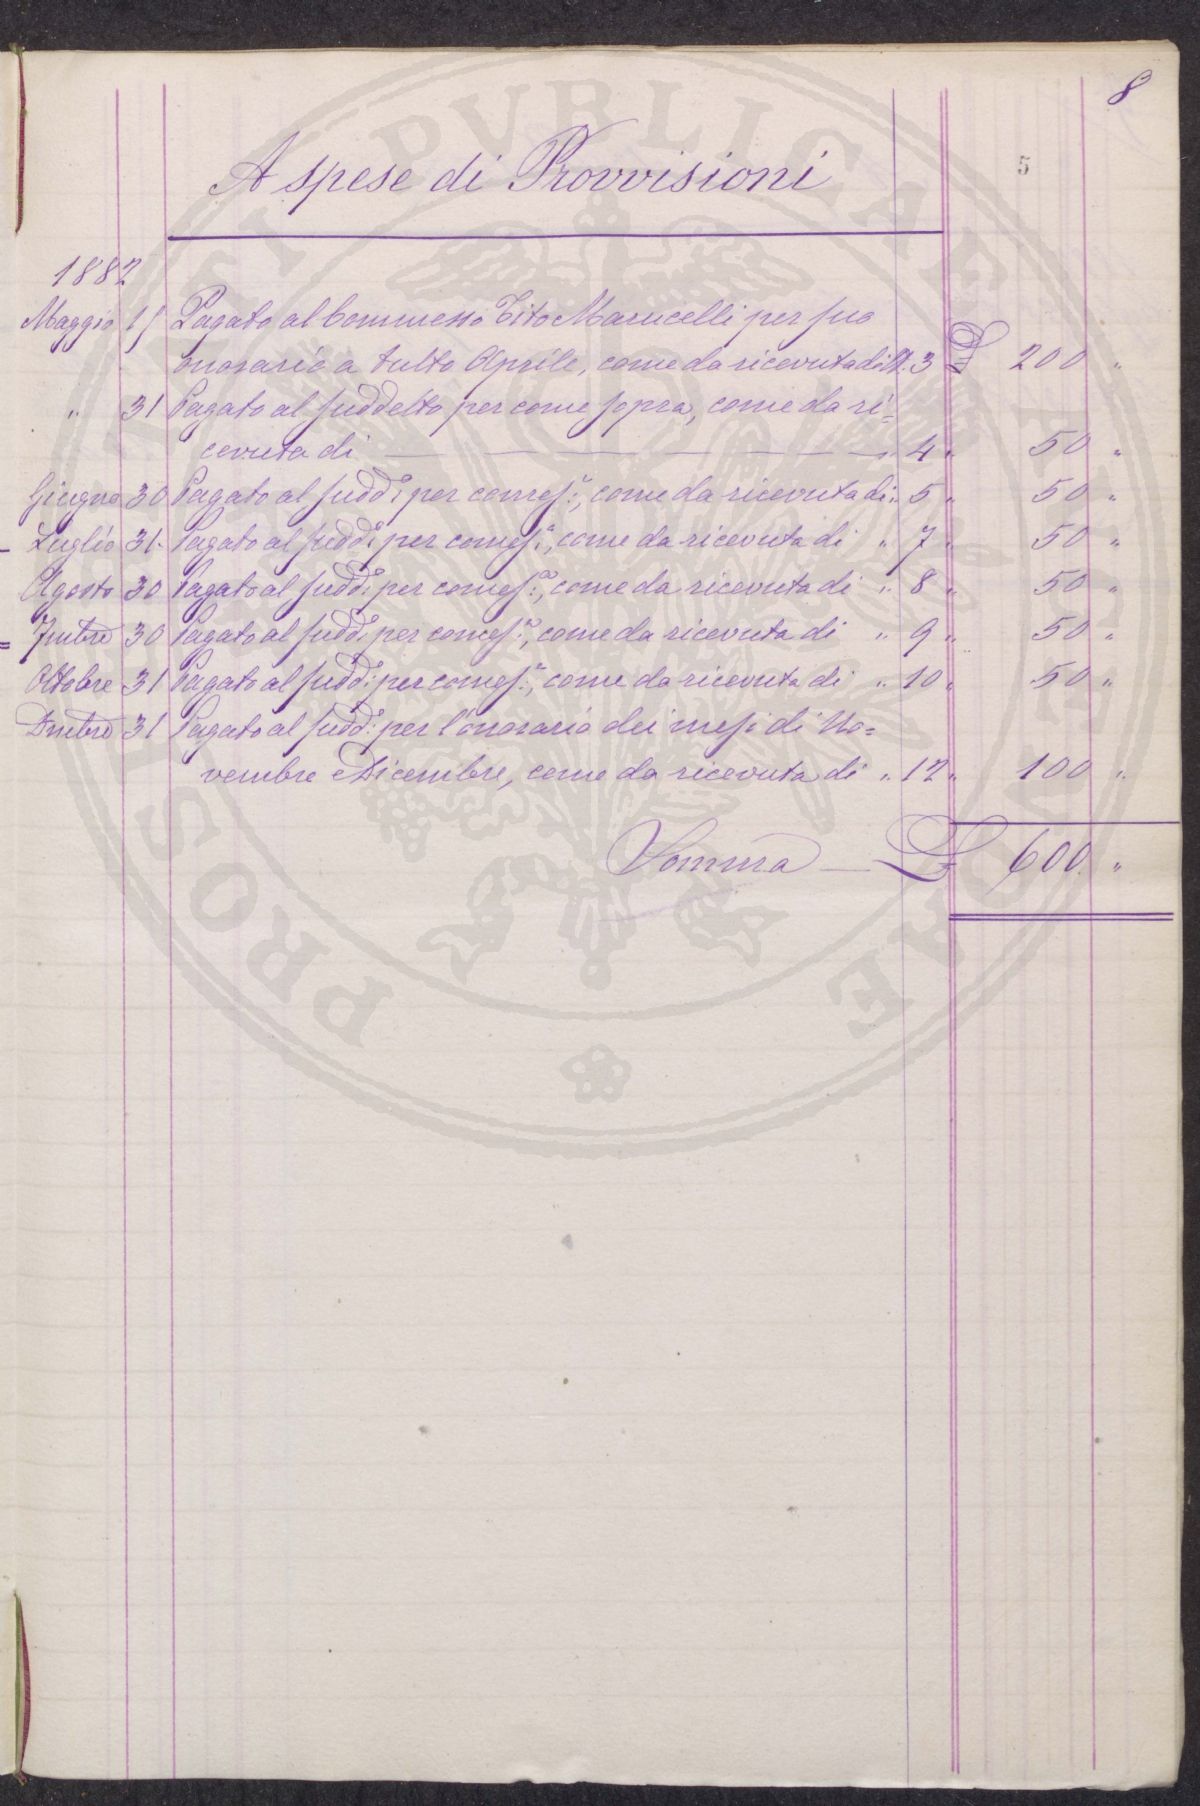 8
5
A spese di Provvisioni
1882
Maggio 15 Pagato al Commesso Tito Marucelli per suo
onorario a tutto Aprile, come da ricevuta di N. 3 £ 200 "
" 31 Pagato al suddetto per come sopra, come da ri=
cevuta di " 4 " 50 "
Giugno 30 Pagato al sudd: per come sa:, come da ricevuta di " 5 " 50 "
Luglio 31 Pagato al sudd: per come sa:, come da ricevuta di " 7 " 50 "
Agosto 30 Pagato al sudd: per come sa:, come da ricevuta di " 8 " 50 "
7mbre 30 Pagato al sudd: per come sa:, come da ricevuta di " 9 " 50 "
Ottobre 31 Pagato al sudd: per come sa:, come da ricevuta di " 10 " 50 "
Dmbre 31 Pagato al sudd: per l'onorario dei mesi di No=
vembre Dicembre, come da ricevuta di " 12 " 100 "
Somma £ 600 "
PROSPERITATI PVBLICAE AVGENDAE